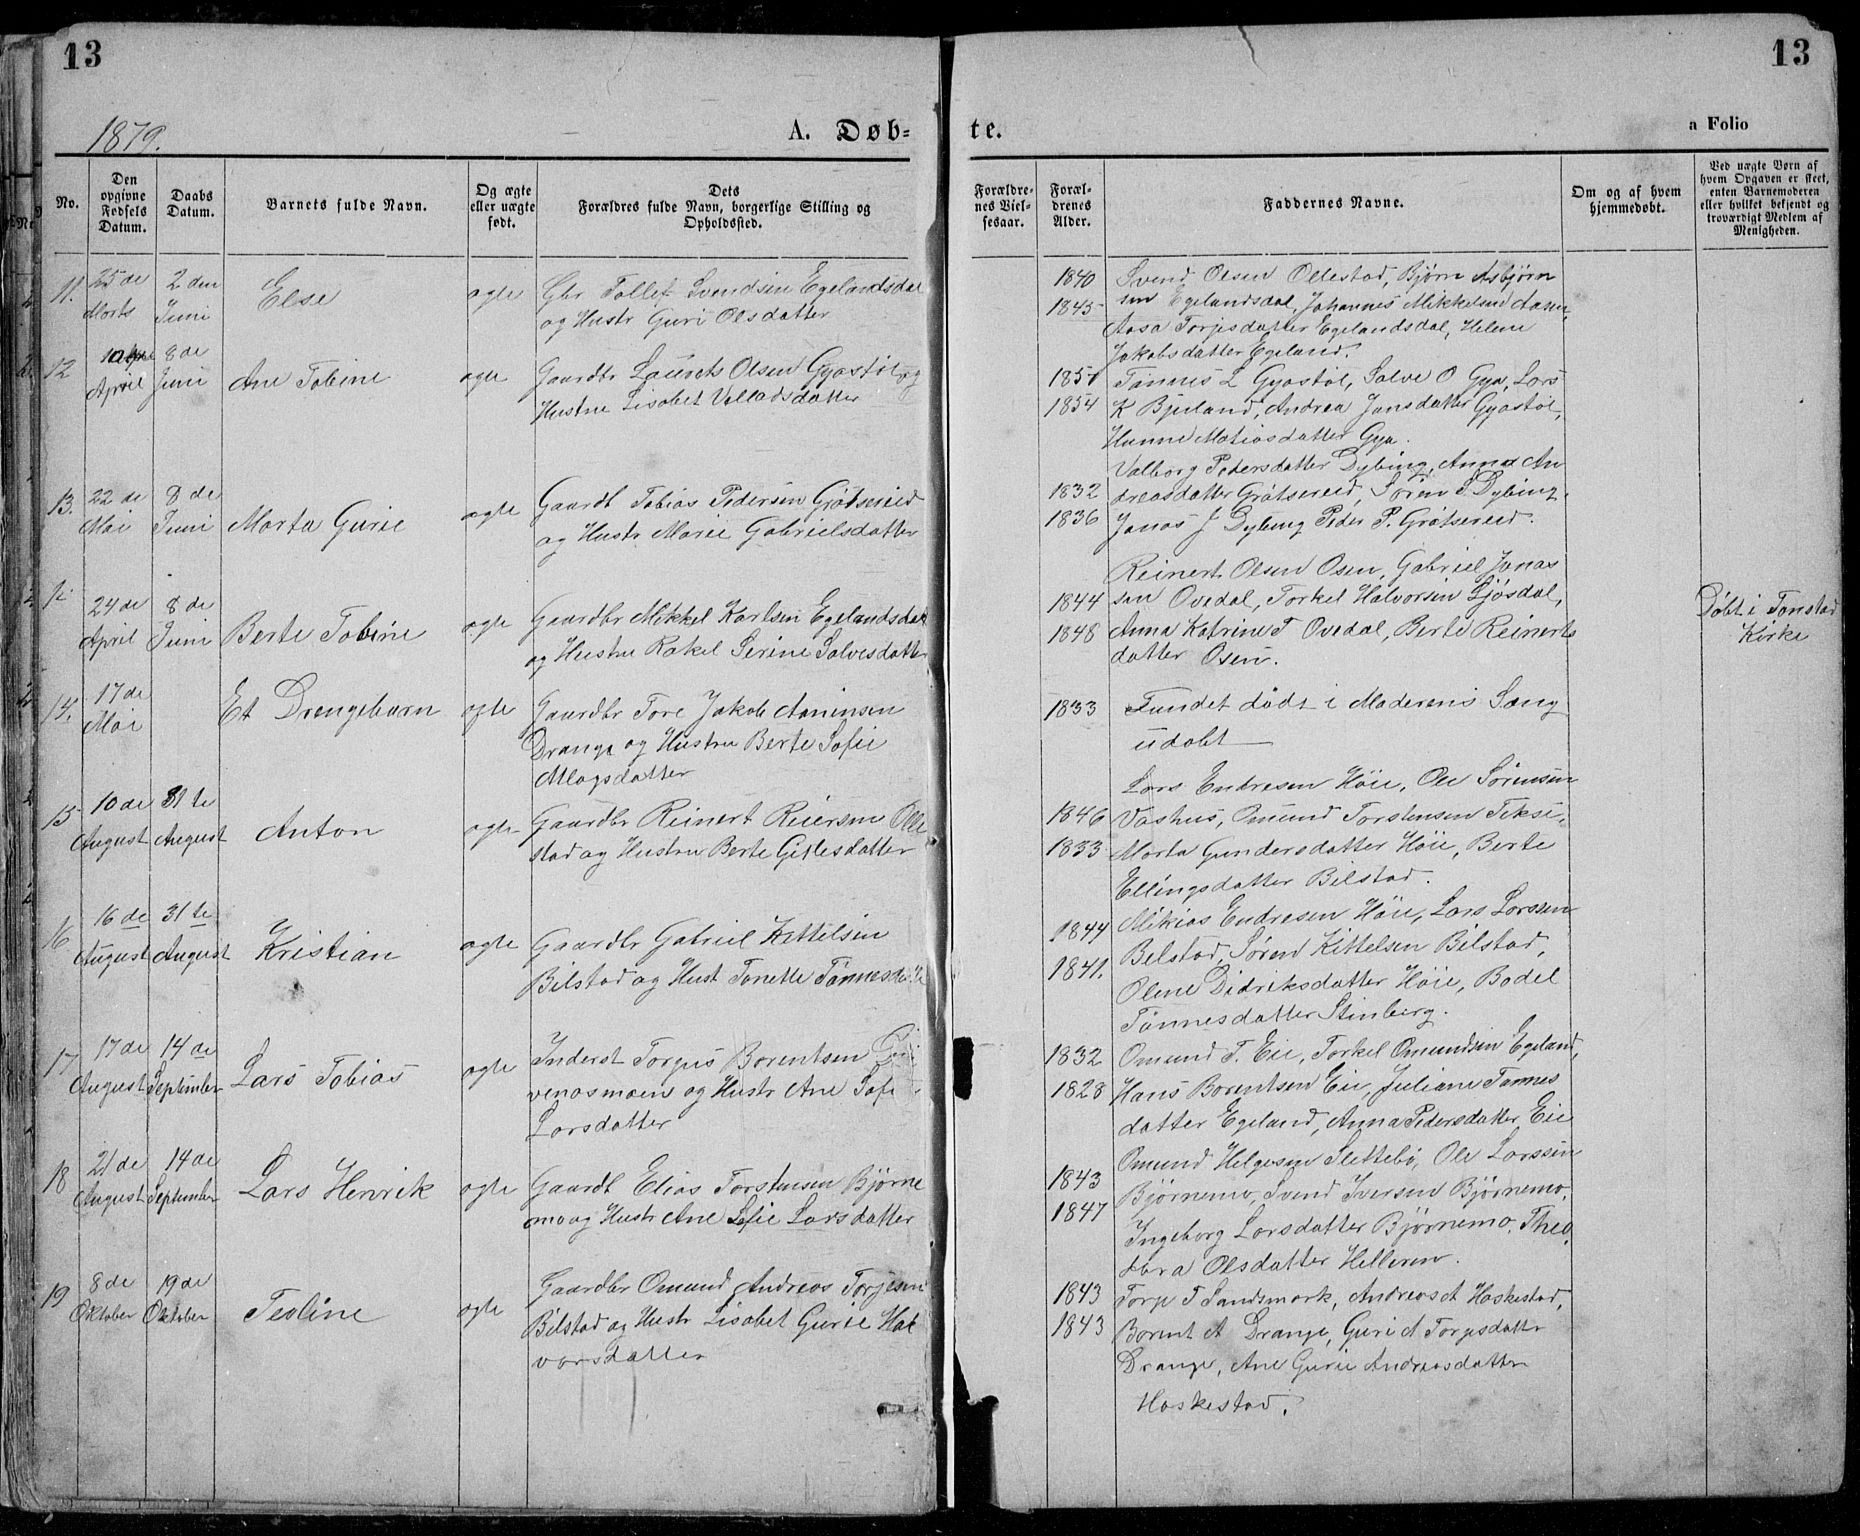 13
13
1879.
A. Døb-
te.
a Folio
No.
Den opgivne Fødsels Datum.
Daabs Datum.
Barnets fulde Navn.
Og ægte eller uægte født.
Dets Forældres fulde Navn, borgerlige Stilling og Opholdssted.
Forældrenes Vielsesaar.
Forældrenes Alder.
Faddernes Navne.
Om og af hvem hjemmedøbt.
Ved uægte Børn af hvem Opgaven er skeet, enten Barnemoderen eller hvilket bekjendt og troværdigt Medlem af Menigheden.
11. 25de Marts 2den Juni Else ægte Gbr Tollef Svendsen Egelandsdal
og Hustr Guri Olsdatter
1840 Svend Olsen Ollestad, Bjørn Asbjørn
1845 sen Egelandsdal, Johannes Mikkelsen Aasen,
Aasa Torjesdatter Egelandsdal, Helene
Jakobsdatter Egeland.
12 April 8de Juni Ane Tobine ægte Gaardbr Laurets Olsen Gyastøl og
Hustru Lisabet Valladsdatter
1851 Tønnes L Gyastøl, Salve O Gya, Lars
1854 K Bjuland, Andrea Jansdatter Gyastøl,
Hanne Matiasdatter Gya.
13. 22de Mai 8de Juni Marta Gurie ægte Gaardb Tobias Pedersen Grøtsereid
og Hustr Marie Gabrielsdatter
Valborg Pedersdatter Dybing, Anna An
1832 dreasdatter Grøtsereid, Søren S. Dybing,
1836 Jonas J Dybing Peder P. Grøtsereid.
24de April 8de Juni Berte Tobine ægte Gaardbr Mikkel Karlsen Egelandsdal
og Hustru Rakel Serine Salvesdatter
Reinert Olsen Osen, Gabriel Jonas
1844 sen Ovedal, Torkel Halvorsen Ljosdal,
1848 Anna Katrine T Ovedal, Berte Reinerts
datter Osen.
Døbt i Tonstad
Kirke
14. 17de Mai Et Drengebarn ægte Gaardbr Tore Jakob Aanensen
Drange og Hustru Berte Sofie
Atlagsdatter
1833 Fundet dødt i Moderens Sæng
udøbt
15 10de August 31te August Anton ægte Gaardbr Reinert Reiersen Olle
stad og Hustru Berte Gitlesdatter
Lars Endresen Høie, Ole Sørensen
1846 Vashus, Omund Torstensen Tekse,
1833 Marta Gundersdatter Høie, Berte
Ellingsdatter Bilstad.
16 16de August 31te August Kristian ægte Gaardbr Gabriel Kittelsen
Bilstad og Hust Tonette Tønnesdatte
1844 Mikias Endresen Høie, Lars Larssen
1841. Bilstad, Søren Kittelsen Bilstad,
Olene Didriksdatter Høie, Bodel
Tønnesdatter Stenberg.
17 17de August 14de September Lars Tobias ægte Inderst Torgus Borentsen
venosmoen og Hustr Ane Sofi
Larsdatter
1832 Omund T. Eie, Torkel Omundsen Egeland,
1828 Hans Borentsen Eie, Juliane Tønnes
datter Egeland, Anna Pedersdatter Eie
18 21de August 14de September Lars Henrik ægte Gaardb Elias Torstensen Bjørne
mo og Hustr Ane Sofie Larsdatter
Omund Helgesen Slettebø, Ole Larssen
1843 Bjørnemo, Svend Iversen Bjørnemo,
1847 Ingeborg Larsdatter Bjørnemo, Theo
dora Olsdatter Helleren.
19 8de Oktober 19de Oktober Teoline ægte Gaardbr Omund Andreas Torjesen
Bilstad og Hustr Lisabet Gurie Hal
vorsdatter
1843 Torje T Sandsmark, Andreas A Haskestad,
1843 Borent A Drange, Guri A Torjesdatter
Drange, Ane Gurie Andreasdatter
Haskestad.